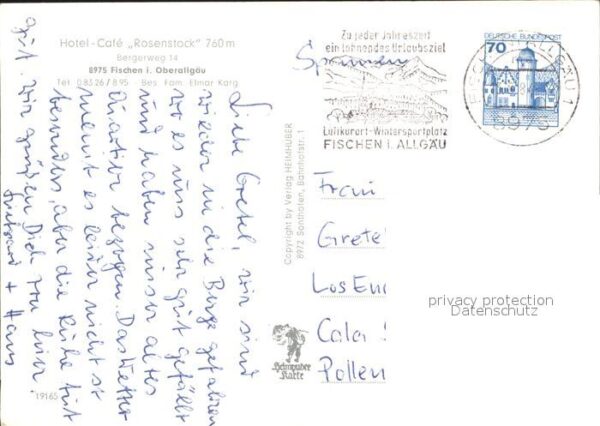 Hotel-Café „Rosenstock" 760 m
Bergerweg 14
8975 Fischen i. Oberallgäu
Tel. 08326/895 Bes. Fam. Elmar Karg
Zu jeder Jahreszeit
ein lohnendes Urlaubsziel
Luftkurort-Wintersportplatz
FISCHEN I. ALLGÄU
70
DEUTSCHE BUNDESPOST
FISCHEN I. ALLGÄU 1
8975
Spanien
Liebe Gretel, wir sind
wieder in die Berge gefahren
wo es uns sehr gut gefällt
und haben unser altes
Quartier bezogen. Das Wetter
meint es leider nicht so
besonders, aber die Ruhe tut
gut. Wir grüßen Dich von hier
+ Hans
Copyright by Verlag HEIMHUBER
8972 Sonthofen, Bahnhofstr. 1
Heimhuber
Karte
Frau
Grete
Los En
Cala
Pollen
privacy protection
Datenschutz
19165